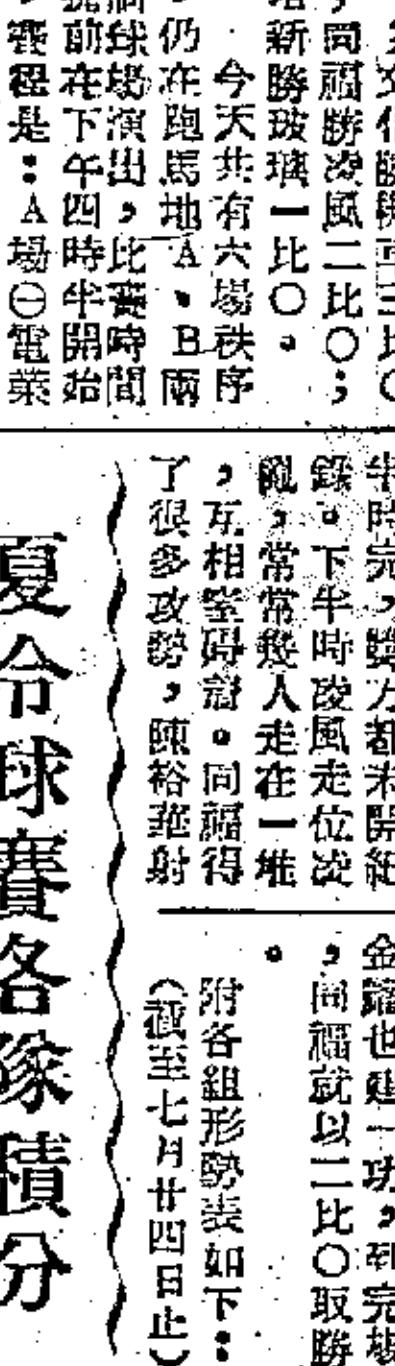 同福勝凌風二比〇；
新勝玻璃一比〇。
今天共有六場秩序
仍在跑馬地A、B兩
球場演出，比賽時間
前在下午四時半開始
賽程是：A場㊀電業
半時完，雙方都未開紀
錄。下半時凌風走位凌
亂，常常幾人走在一堆
，互相窒碍着。同福得
了很多攻勢，陳裕華射
金鐳也建一功，到完場
，同福就以二比〇取勝
。
附各組形勢表如下：
（截至七月廿四日止）
夏令球賽各隊積分